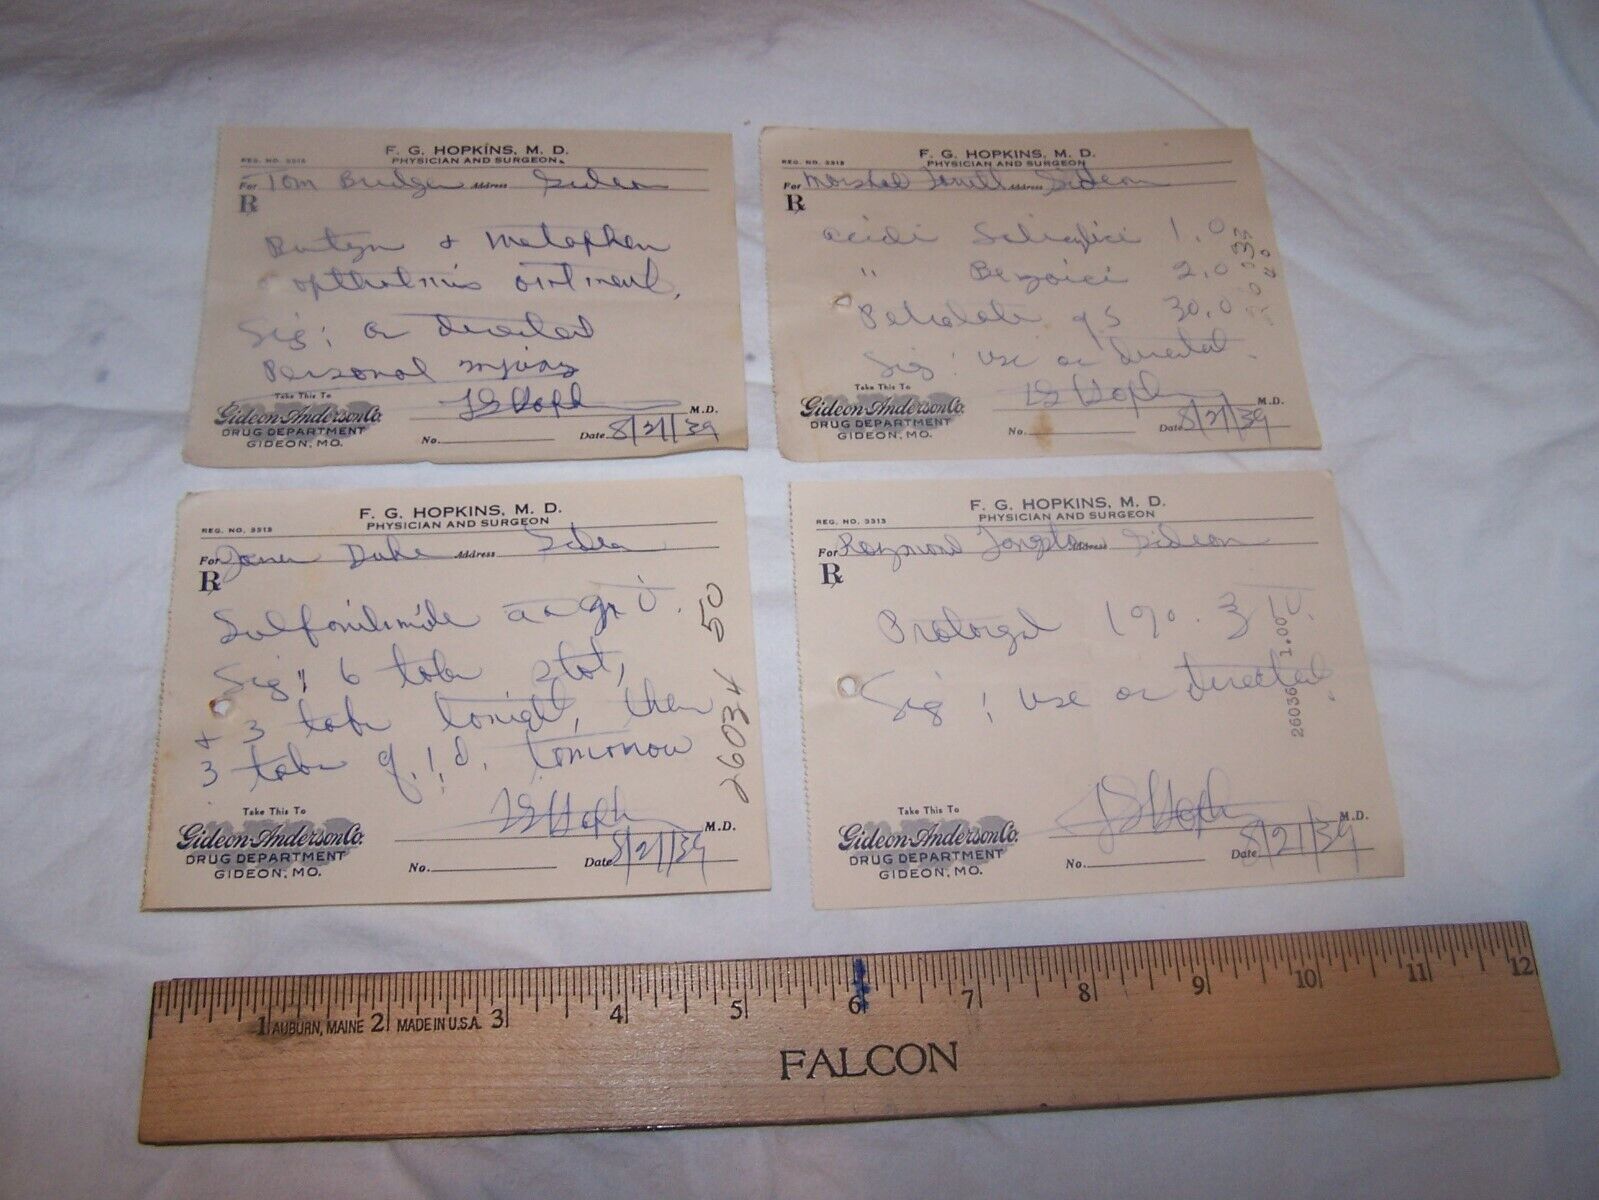 F. G. HOPKINS, M. D.
REG. NO. 3313 PHYSICIAN AND SURGEON
For Tom Address Gideon
Rx
Butyn & Metaphen
opthalmic ointment.
Sig: as directed
Personal injury
Take This To
Gideon-Anderson Co.
DRUG DEPARTMENT
GIDEON, MO.
M.D.
No. Date 8/21/39
F. G. HOPKINS, M. D.
REG. NO. 3313 PHYSICIAN AND SURGEON
For Address Gideon
Rx
acidi Salicylici 1.0
" Benzoici 2.0
Petrolati qs 30.0
Sig: use as directed.
Take This To
Gideon-Anderson Co.
DRUG DEPARTMENT
GIDEON, MO.
M.D.
No. Date 8/21/39
F. G. HOPKINS, M. D.
REG. NO. 3313 PHYSICIAN AND SURGEON
For Duke Address Gideon
Rx
Sulfanilimide aa gr v.
Sig: 6 tabs stat,
& 3 tabs tonight, then
3 tabs q.i.d. tomorrow
26034 50
Take This To
Gideon-Anderson Co.
DRUG DEPARTMENT
GIDEON, MO.
M.D.
No. Date 8/21/39
F. G. HOPKINS, M. D.
REG. NO. 3313 PHYSICIAN AND SURGEON
For Raymond Address Gideon
Rx
Protargol 1%
Sig: use as directed.
26036 1.00
Take This To
Gideon-Anderson Co.
DRUG DEPARTMENT
GIDEON, MO.
M.D.
No. Date 8/21/39
1 2 3 4 5 6 7 8 9 10 11 12
AUBURN, MAINE MADE IN U.S.A.
FALCON